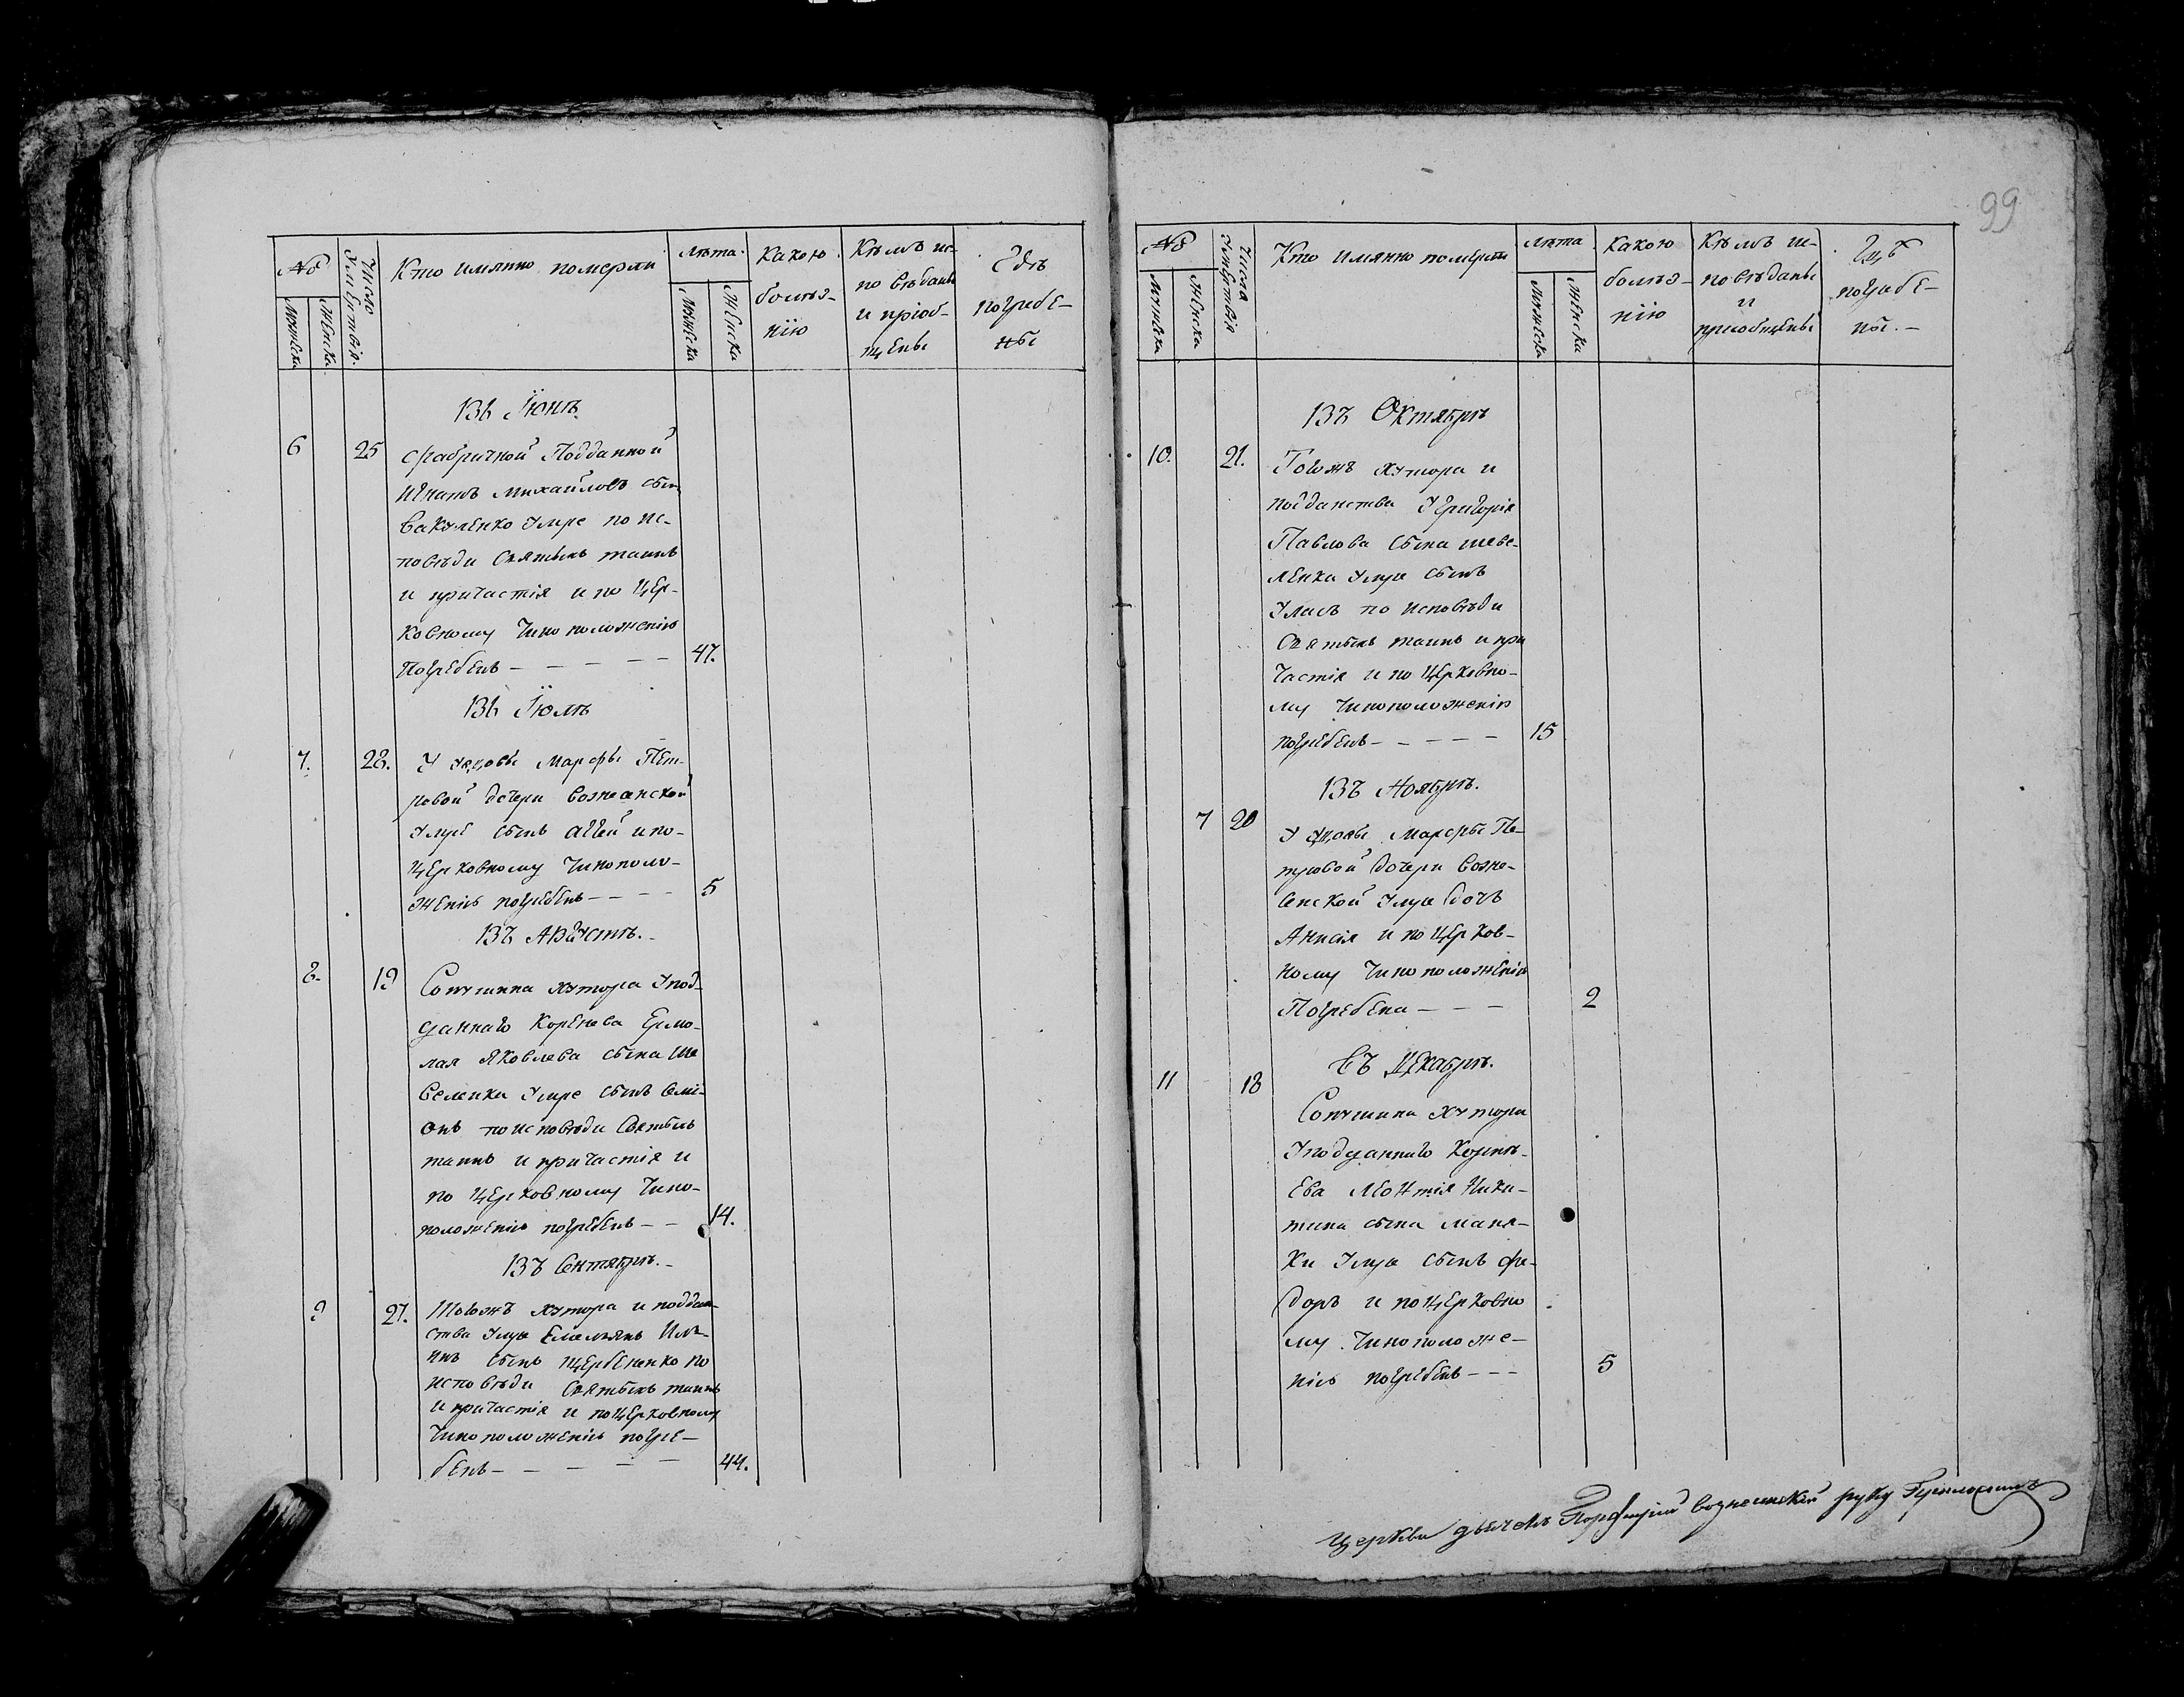 99
№
Число умертвiя.
Кто имянно померли
лѣта.
Какою болѣз-
нїю
Кѣмъ ис-
повѣданы
и прiоб-
щены
Гдѣ
погребе-
ны
мужеска
женска
мужеска
женска
Въ Їюнѣ.
6 25 Фабричной Подданной
Игнатъ Михайловъ сынъ
Вакуленко умре по ис-
повѣди святыхъ таинъ
и причастiя и по цер-
ковному чиноположенiю
погребенъ 47.
Въ Їюлѣ
7. 28. У вдовы Марфы Пет-
ровой дочери Вознесенской
умре сынъ Аггей и по-
церковному чинополо-
женiю погребенъ 5
Въ Августѣ.
8. 19 хутора у под-
даннаго Коренева Ермо-
лая Яковлева сына Ше
веленка умре сынъ Семi-
онъ по исповѣди святыхъ
таинъ и причастiя и
по церковному чино-
положенiю погребенъ 14.
Въ Сентябрѣ.
9 27. Тогожъ хутора и поддан-
ства умре Емельянъ Иль-
инъ сынъ Щербененко по
исповѣди святыхъ таинъ
и причастiя и по церковному
чиноположенiю погре-
бенъ 44.
№
Числа умертвiя
Кто имянно померли
лѣта
Какою
болѣз-
нiю
Кѣмъ ис-
повѣданы
и
приобщены
Гдѣ
погребе-
ны.
мужеска
женска
мужеска
женска
Въ Октябрѣ
10. 21. Тогожъ хутора и
подданства у Григорiя
Павлова сына Шеве-
ленка умре сынъ
Уласъ по исповѣди
святыхъ таинъ и при
частiя и по церковно-
му чиноположенiю
погребенъ 15
Въ Ноябрѣ.
7 20 У вдовы Марфы Пе-
тровой дочери Возне-
сенской умре дочь
Анисiя и по церков-
ному чиноположенiю
Погребена 2
Въ Декабрѣ.
11 18
хутора
у подданнаго Корене-
ева Леонтiя Ники-
тина сына Маня-
ки умре сынъ Фе-
доръ и по церковно
му чиноположе-
нiю погребенъ 5
Церкви дьячекъ Порфирий Вознесенский руку приложилъ